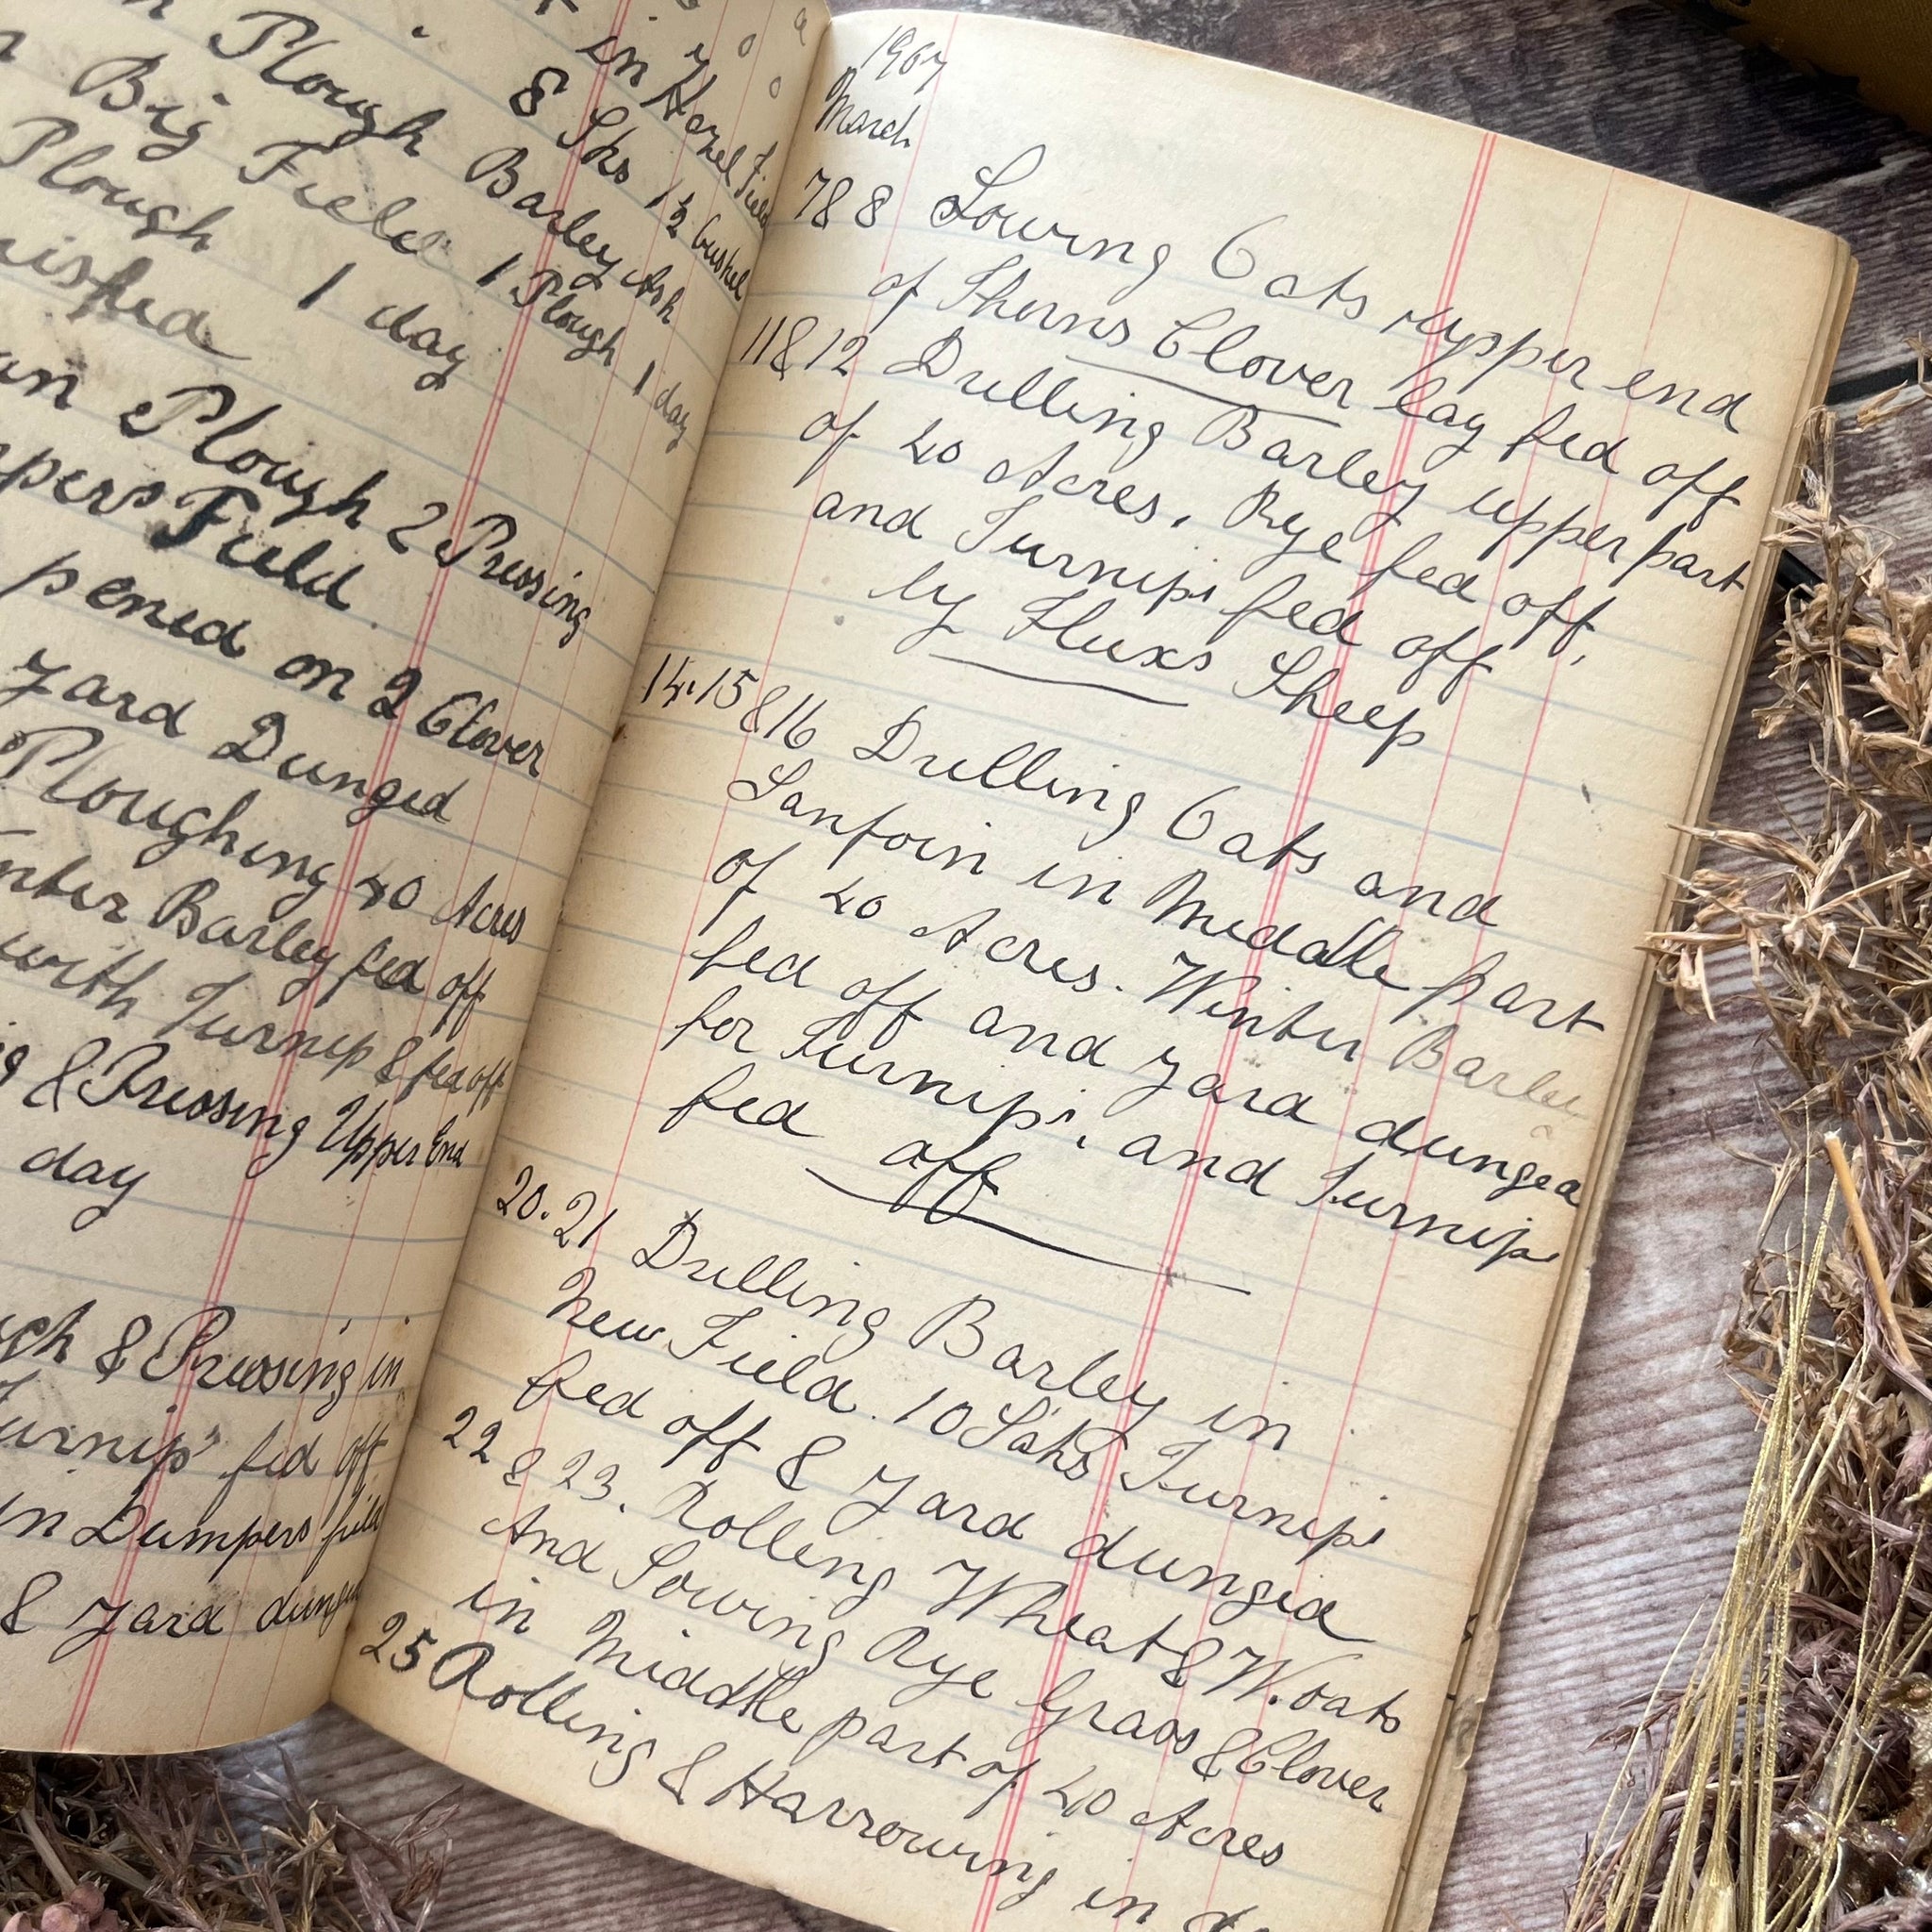 in Hazel Field
Plough 8 Sks 1½ bushel
Big Field Barley Ash
Plough 1 day 1 Plough 1 day
Plough 2 Pressing
Field
pened on 2 Clover
Yard Dunged
Ploughing 40 Acres
Barley fed off
with Turnip & fed off
& Pressing Upper End
day
& Pressing in
fed off
in Dumpers field
& Yard dunged
1907
March
7 & 8 Sowing Oats upper end
of Sherns Clover lay fed off
11 & 12 Drilling Barley upper part
of 40 Acres. Rye fed off,
and Turnips fed off
by Fluxs Sheep
14.15 & 16 Drilling Oats and
Sanfoin in Middle part
of 40 Acres. Winter Barley
fed off and Yard dunged
for Turnips, and Turnips
fed off
20.21 Drilling Barley in
New Field. 10 Saks Turnips
fed off & Yard dunged
22 & 23. Rolling Wheat & W. oats
And Sowing Rye Grass & Clover
in Middle part of 40 Acres
25 Rolling & Harrowing in